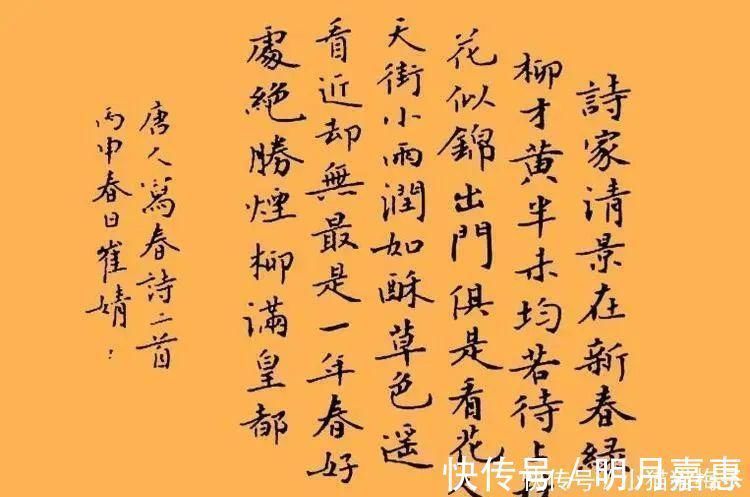 詩家清景在新春綠
柳才黃半未均若待上
花似錦出門俱是看花人
天街小雨潤如酥草色遥
看近却無最是一年春好
處絶勝煙柳滿皇都
唐人寫春詩二首
丙申春日崔婧
快传号 / 明月嘉惠